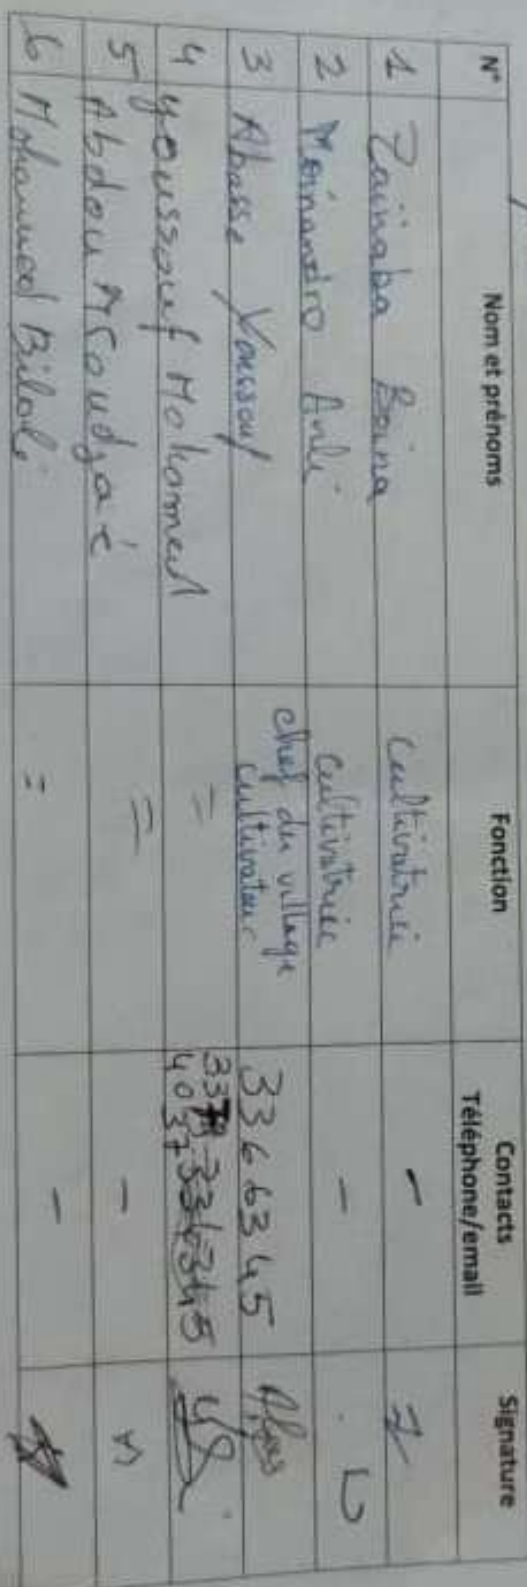 N° Nom et prénoms Fonction Contacts Téléphone/email Signature
1 Zaïnaba Boina cultivatrice -
2 Moinandro Anli cultivatrice -
3 Abasse Youssouf chef du village cultivateur 3366345 Abas
4 Youssouf Mohamed =
5 Abdou Msoudjaé = -
6 Mohamed Bilali = -